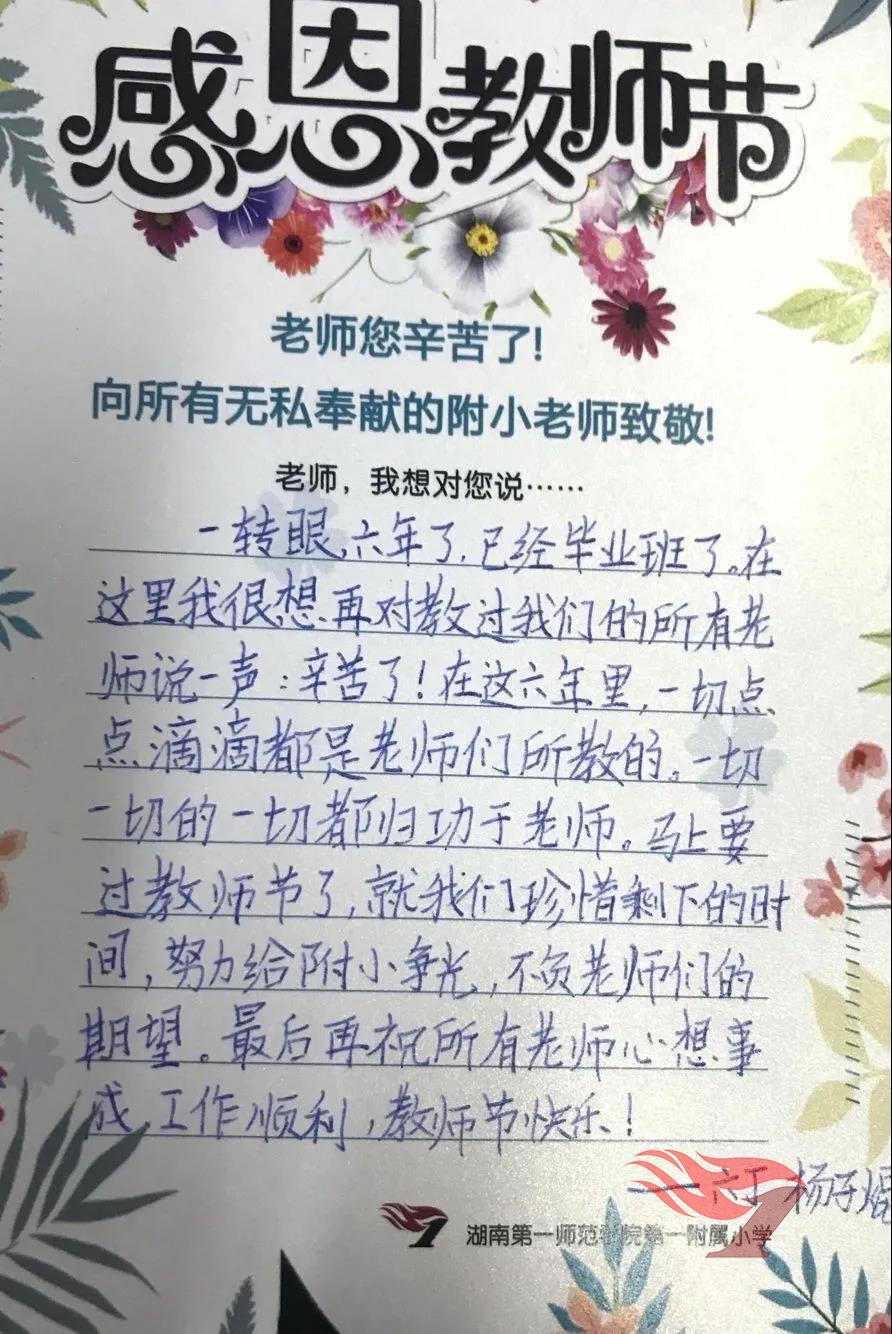 感恩教师节
老师您辛苦了!
向所有无私奉献的附小老师致敬!
老师，我想对您说……
一转眼,六年了,已经毕业班了。在
这里我很想再对教过我们的所有老
师说一声:辛苦了!在这六年里,一切点
点滴滴都是老师们所教的。一切
一切的一切都归功于老师。马上要
过教师节了,就我们珍惜剩下的时
间,努力给附小争光,不负老师们的
期望。最后再祝所有老师心想事
成,工作顺利,教师节快乐!
——六丁 杨子焜
湖南第一师范学院第一附属小学